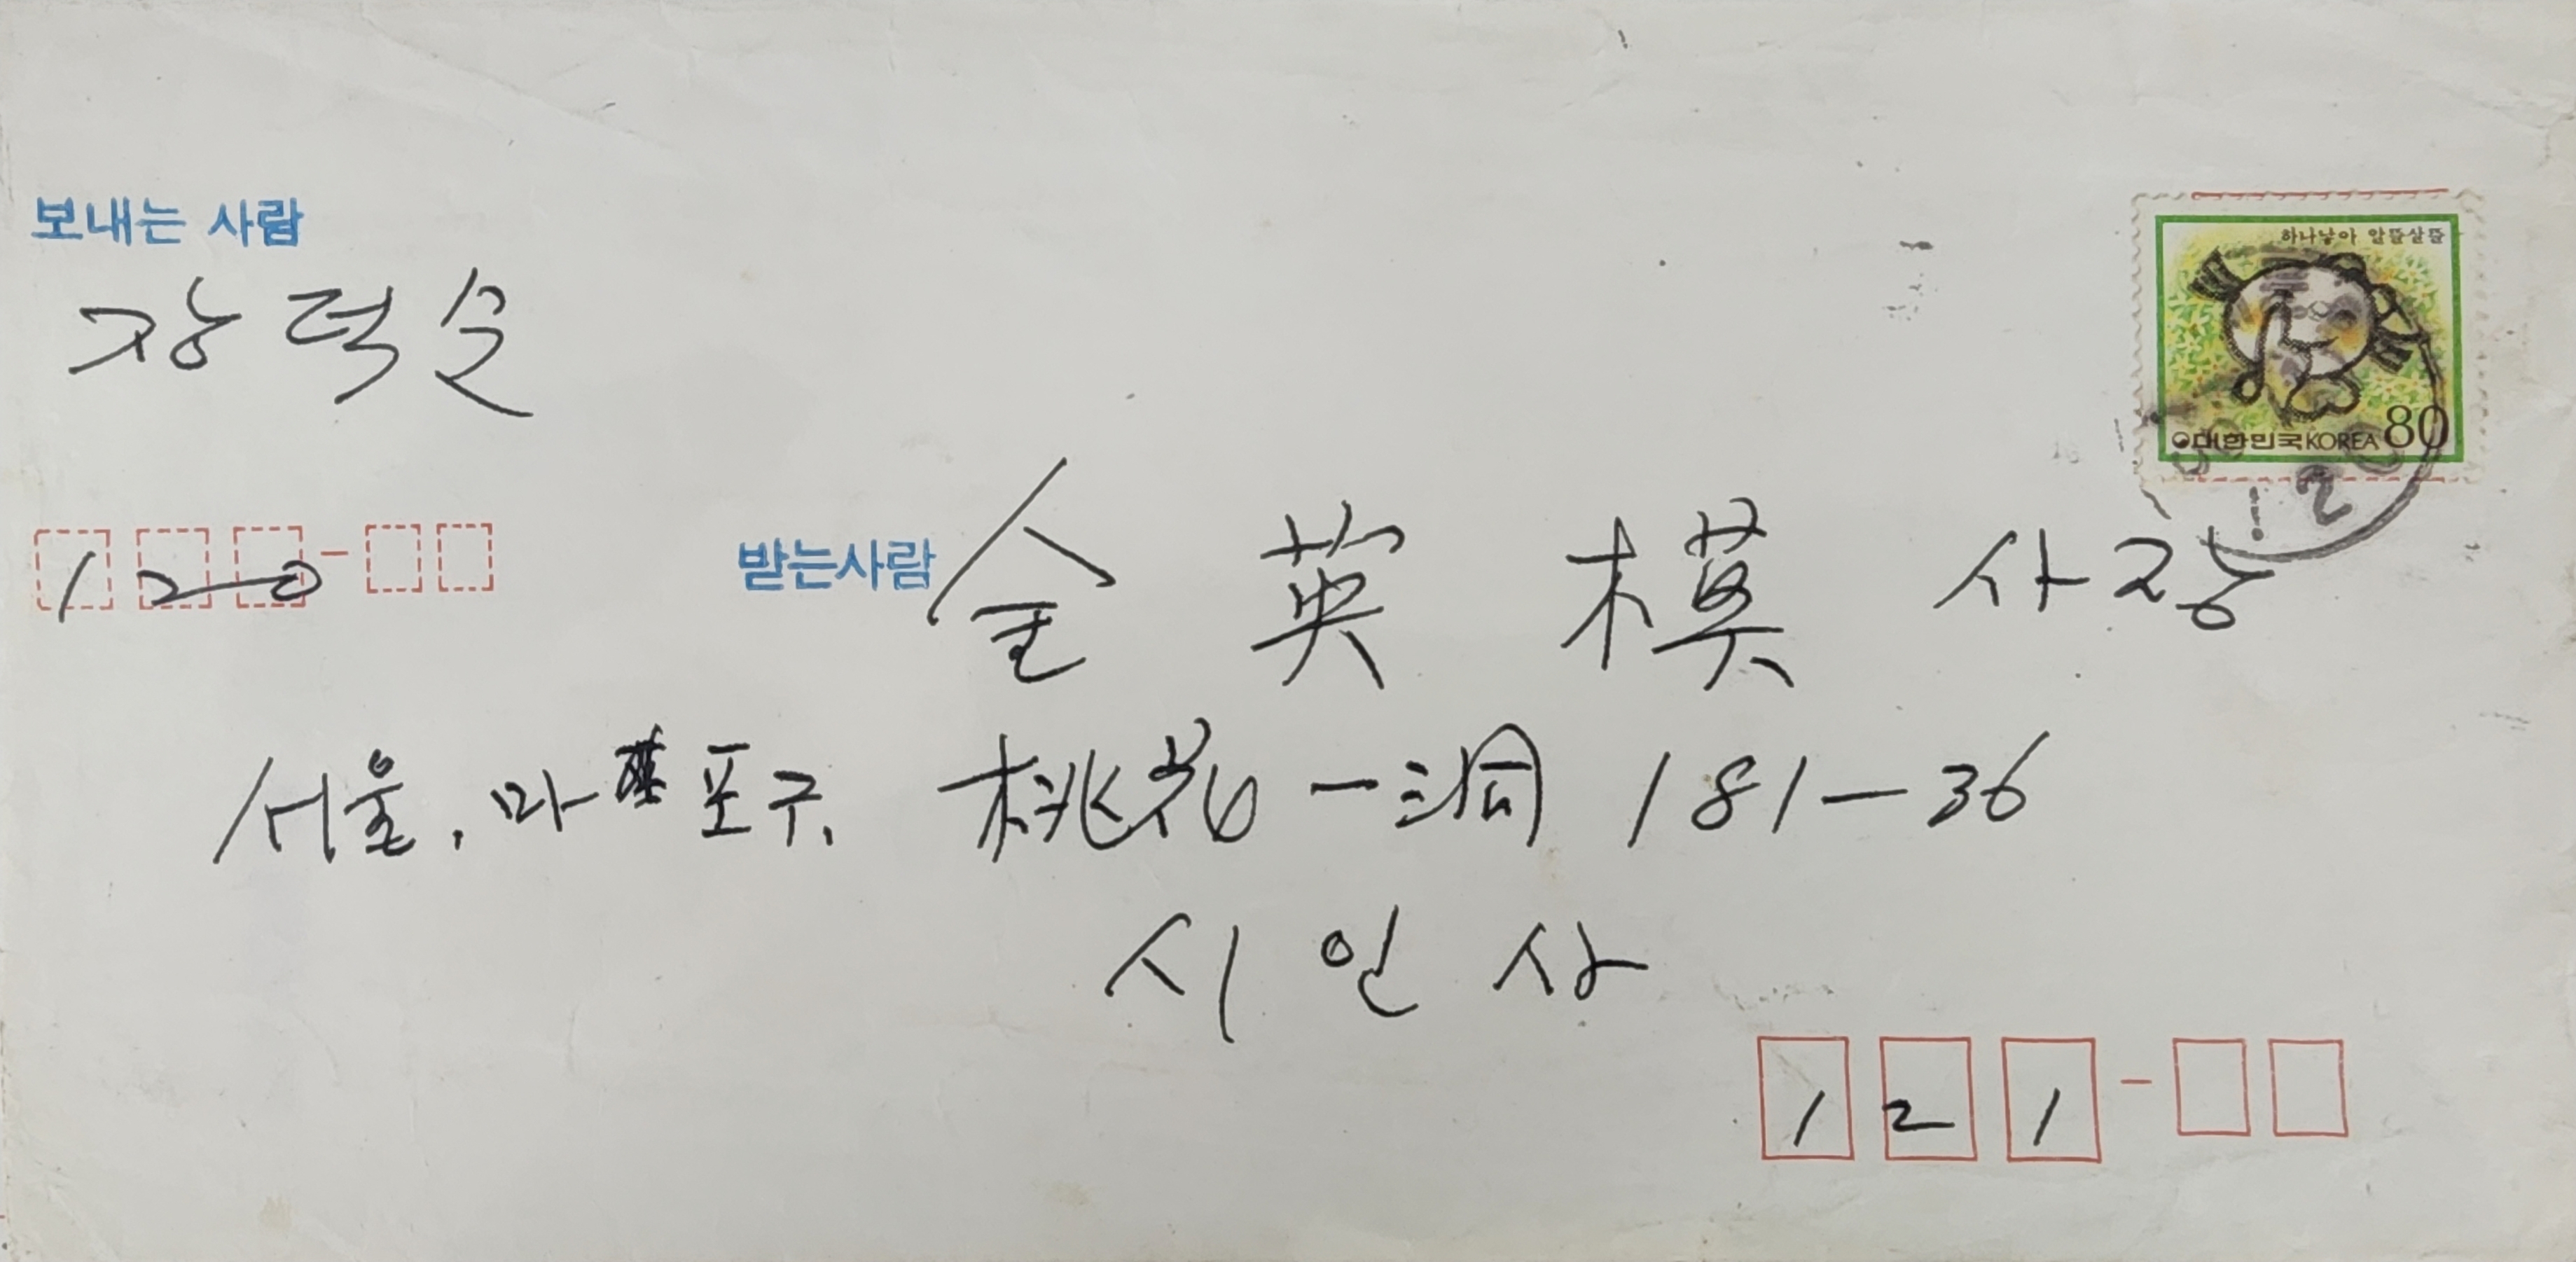 보내는 사람
장덕순
하나낳아 알뜰살뜰
대한민국 KOREA 80
120
받는사람 金英模 사장
서울, 마포구, 桃花一洞 181-36
시인사
121-